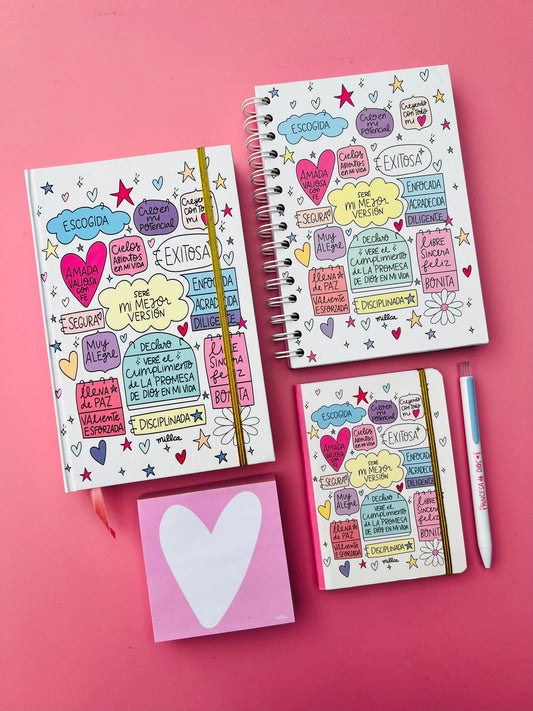 ESCOGIDA
Creo en mi
potencial
Creyendo
con todo
mi
AMADA
VALIOSA
CON FE
Cielos
Abiertos
en mi VIDA
EXITOSA
SEGURA
SERÉ
MI MEJOR
VERSIÓN
ENFOCADA
AGRADECIDA
DILIGENTE
Muy
Alegre
Declaro
VERÉ el
Cumplimiento
de LA PROMESA
DE DIOS EN MI VIDA
LIBRE
Sincera
feliz
BONITA
llena
de PAZ
Valiente
ESFORZADA
DISCIPLINADA
millca
ESCOGIDA
Creo en mi
potencial
Creyendo
con todo
mi
AMADA
VALIOSA
CON FE
Cielos
Abiertos
en mi VIDA
EXITOSA
SEGURA
SERÉ
MI MEJOR
VERSIÓN
ENFOCADA
AGRADECIDA
DILIGENTE
Muy
Alegre
Declaro
VERÉ el
Cumplimiento
de LA PROMESA
DE DIOS EN MI VIDA
LIBRE
Sincera
feliz
BONITA
llena
de PAZ
Valiente
ESFORZADA
DISCIPLINADA
millca
ESCOGIDA
Creo en mi
potencial
Creyendo
con todo
mi
AMADA
VALIOSA
CON FE
Cielos
Abiertos
en mi VIDA
EXITOSA
SEGURA
SERÉ
MI MEJOR
VERSIÓN
ENFOCADA
AGRADECIDA
DILIGENTE
Muy
Alegre
Declaro
VERÉ el
Cumplimiento
de LA PROMESA
DE DIOS EN MI VIDA
LIBRE
Sincera
feliz
BONITA
llena
de PAZ
Valiente
ESFORZADA
DISCIPLINADA
millca
PRINCESA de DIOS
millca